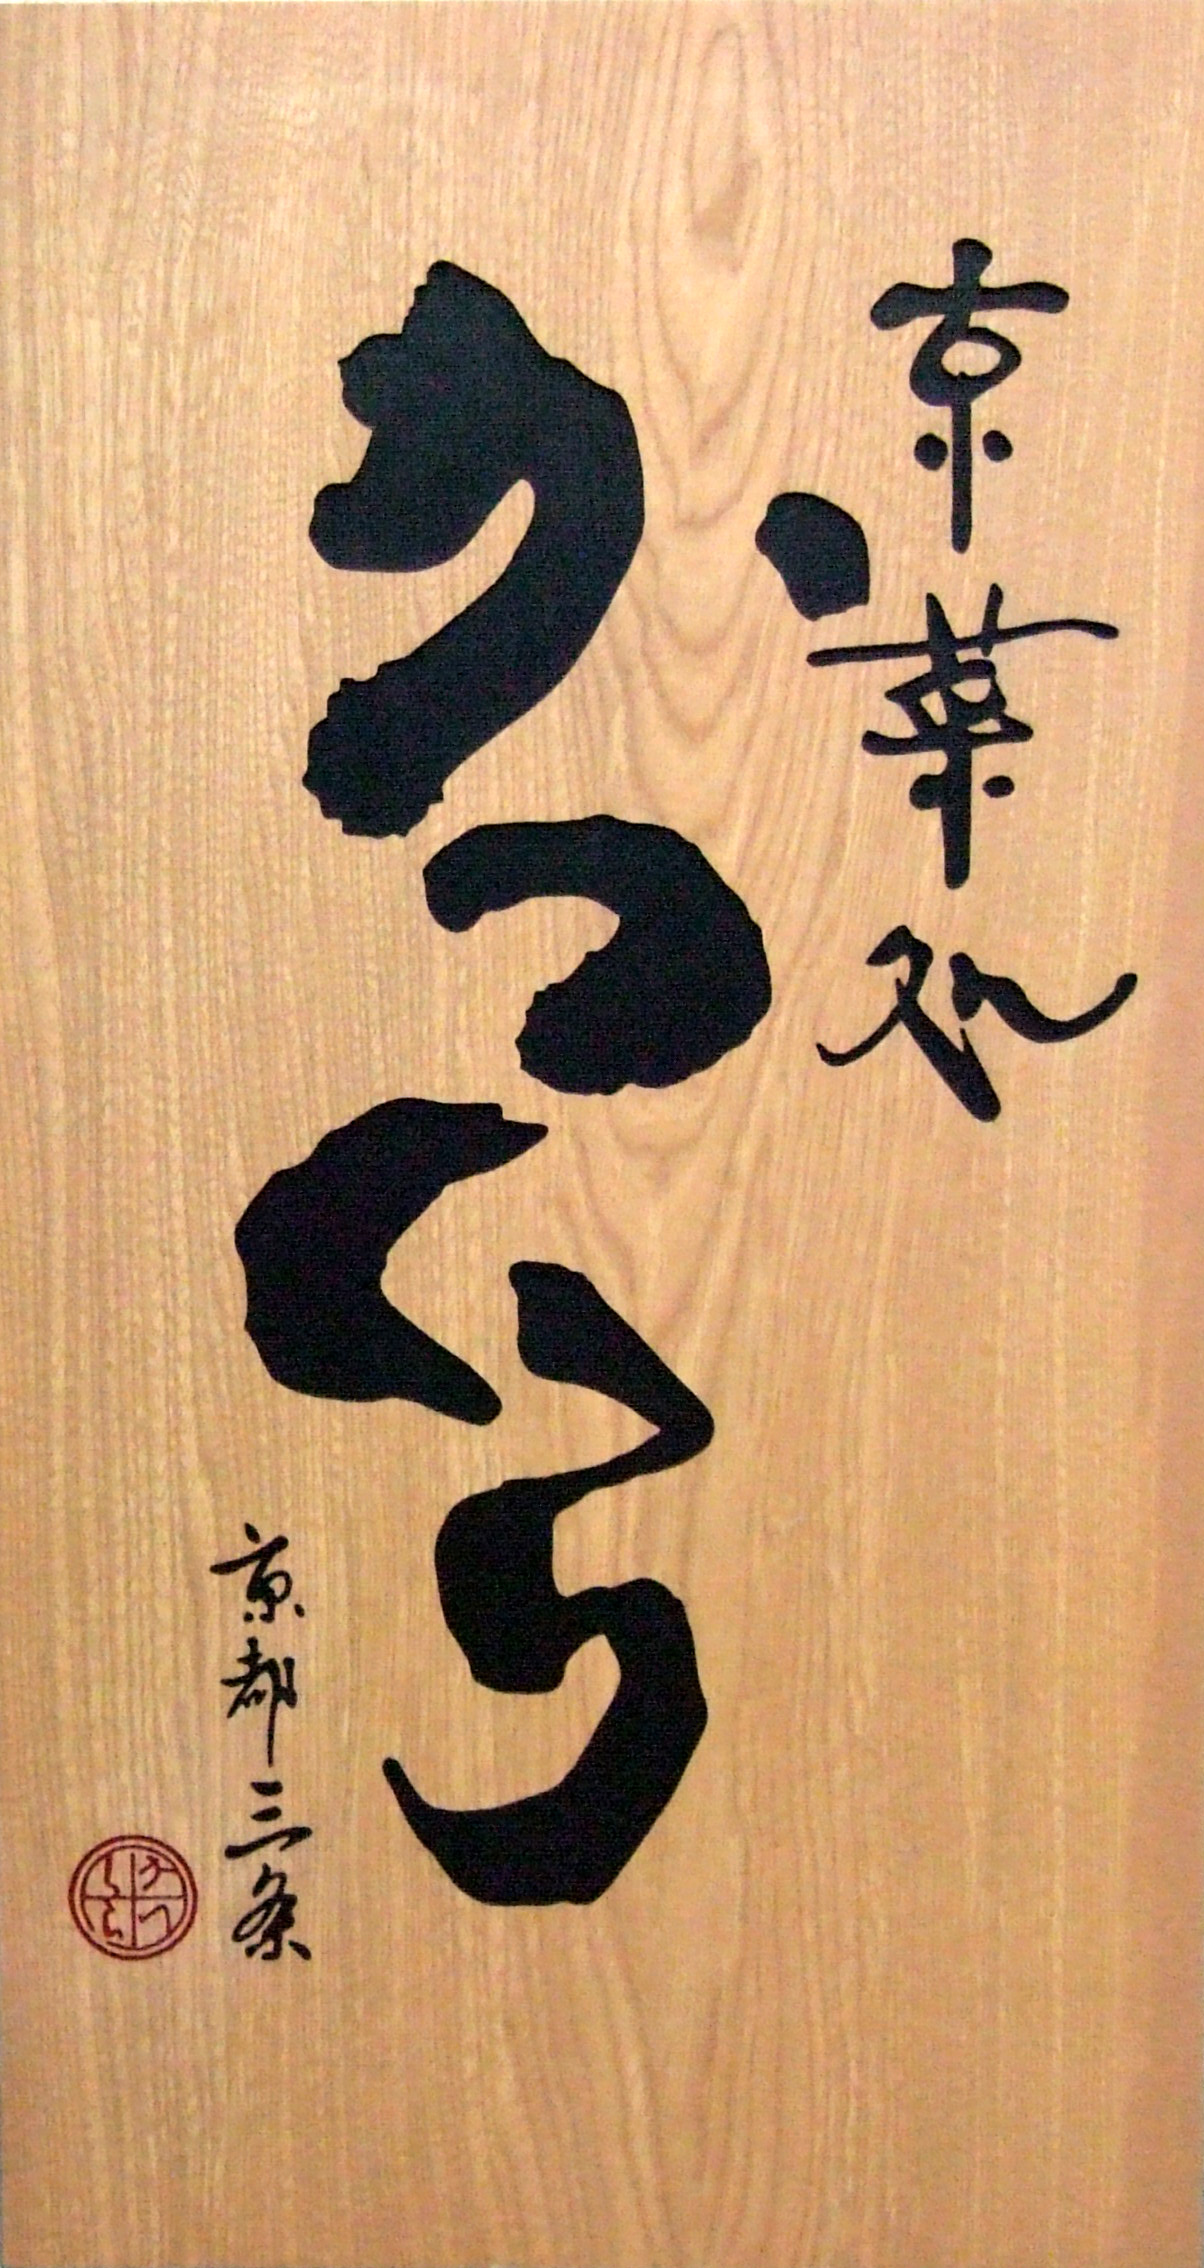 京菓処
かつくら
京都三条
かつくら